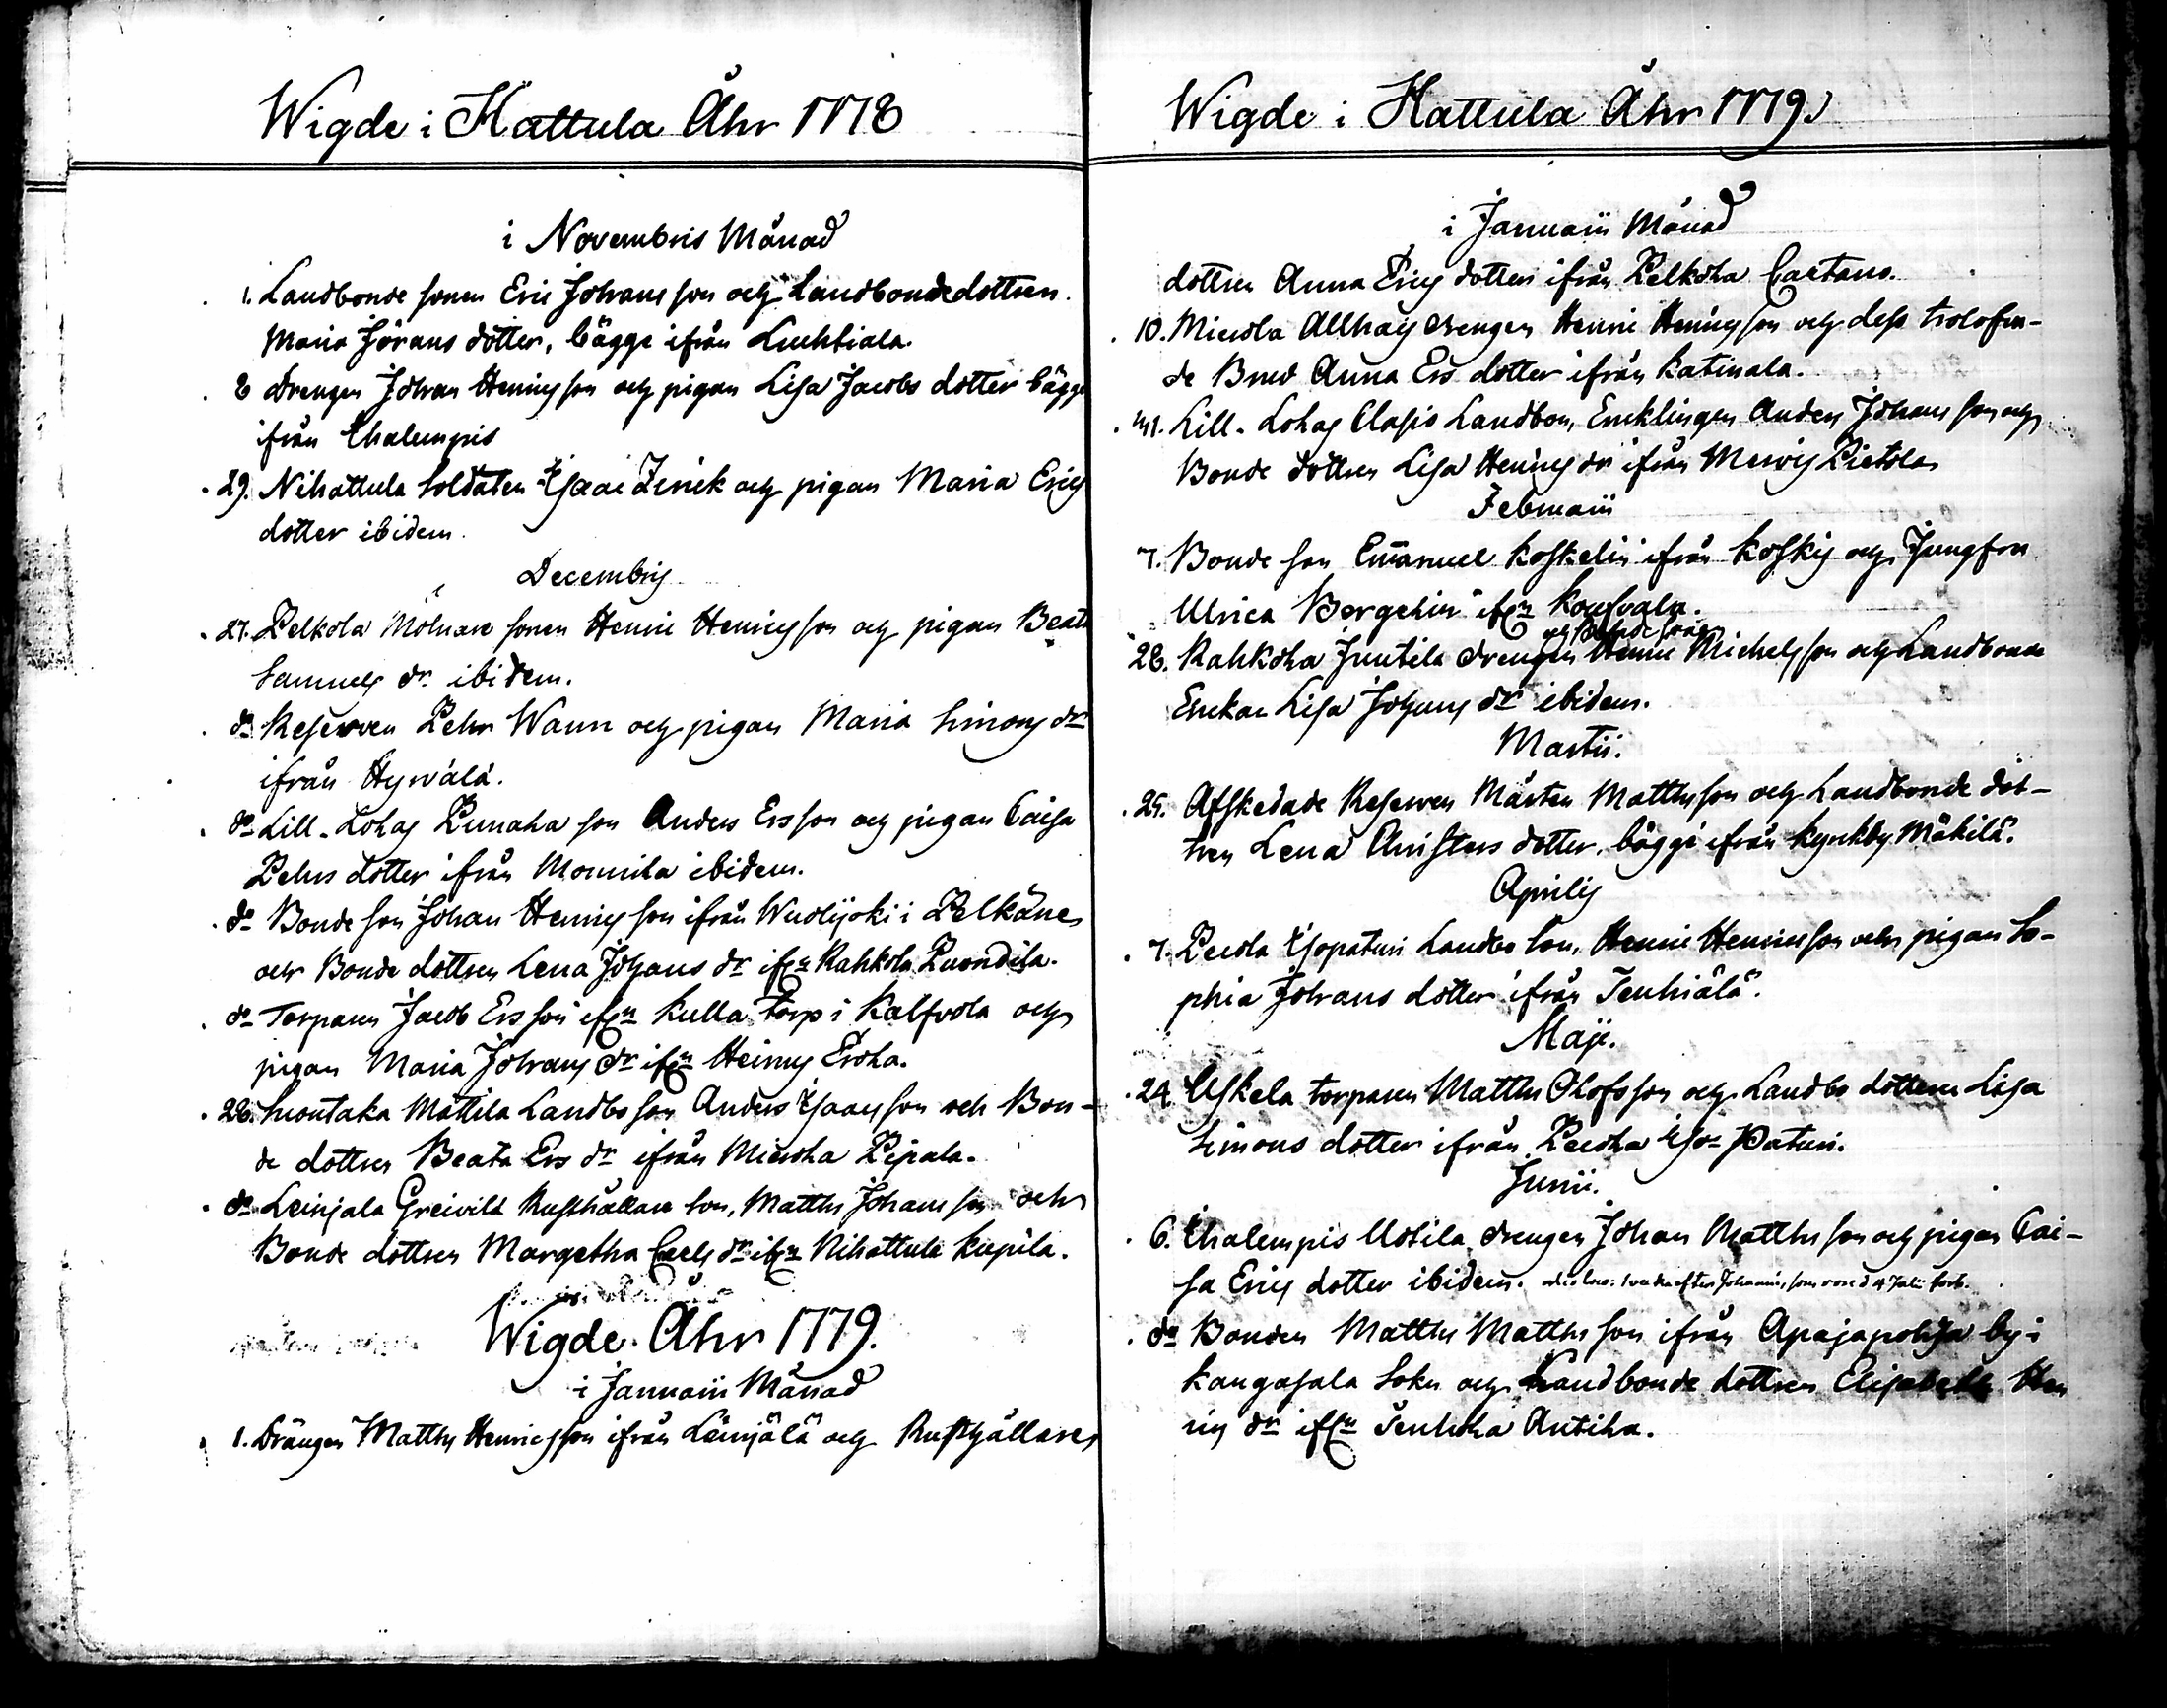 Wigde i Hattula Åhr 1778
i Novembris Månad
1. Landbonde sonen Eric Johansson och Landbondedottren
Maria Jörans dotter, bägge ifrån Luhtiala.
8 Drengen Johan Henricsson och pigan Lisa Jacobs dotter bägge
ifrån Ihalempis
29. Nihattula Soldaten Isaac Frisk och pigan Maria Erics
dotter ibidem.
Decembris
27. Pelkola Mölnare sonen Henric Henricsson och pigan Beata
Samuels dr. ibidem.
do Reserven Pehr Wann och pigan Maria Simons dr
ifrån Hyrvälä.
do Lill-Lohas Punaha son Anders Ersson och pigan Caisa
Pehrs dotter ifrån Monnila ibidem.
do Bonde son Johan Henricsson ifrån Wuolijoki i Pelkäne
och Bonde dottren Lena Johans dr ifrn Rahkola Puondila.
do Torparen Jacob Ersson ifrn Kulla torp i Kalfvola och
pigan Maria Johans dr ifrn Heinus Erola.
28. Suontaka Mattila Landbo son Anders Isaacsson och Bon-
de dottren Beata Ers dr ifrån Mierola Pipala.
do Leinjala Greivilä Rusthållare son, Matths Johansson och
Bonde dottren Margetha Carls dr ifrn Nihattula Kupila.
Wigde Åhr 1779.
i Januarii Månad
1. Drängen Matths Henricsson ifrån Leinjälä och Rusthållare
Wigde i Hattula Åhr 1779
i Januarii Månad
dottren Anna Erics dotter ifrån Pelkola Cartano.
10. Mierola Allhais drengen Henric Henricsson och dess trolofva-
de Brud Anna Ers dotter ifrån Katinala.
Lill-Lohas Clasis Landbon, Encklingen Anders Johansson och
Bonde dottren Lisa Henrics dr ifrån Mervis Pietola
Februarii
7. Bonde son Emanuel Koskelin ifrån Koskis och Jungfru
Ulrica Bergelin ifrn
28. Rahkola Juutila drengen och Bonde sonen Henric Michelsson och Landbonde
Enckan Lisa Johans dr ibidem.
Martii.
25. Afskedade Reserven Mårten Matthsson och Landbonde dot-
tren Lena Christers dotter, bägge ifrån Kyrkby Mäkilä.
Aprilis
7. Perola Isopaturi Landbo son, Henric Henricsson och pigan So-
phia Johans dotter ifrån Tenhiälä.
Maji.
24. Uskela torparen Matths Olofsson och Landbo dottren Lisa
Simons dotter ifrån Perola Iso-Paturi.
Junii.
6. Ihalempis Uotila drengen Johan Matthsson och pigan Cai-
sa Erics dotter ibidem.
do Bonden Matths Matthsson ifrån Apajapohja by i
Kangasala Sokn och Landbonde dottren Elisabeth Hen
rics dr ifrn Tenhola Antila.